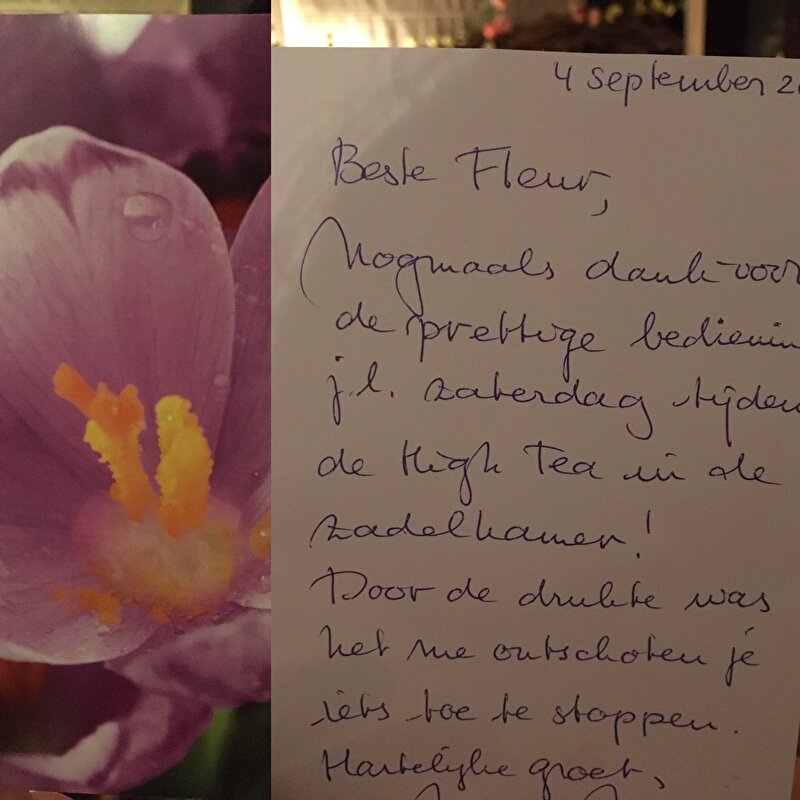 4 september 20
Beste Fleur,
Nogmaals dank voor
de prettige bedienin
j.l. zaterdag tijden
de High Tea in de
zadelkamer!
Door de drukte was
het me ontschoten je
iets toe te stoppen.
Hartelijke groet,